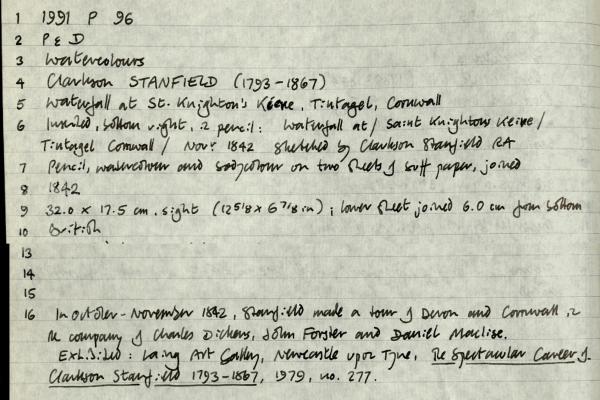 1 1991 P 96
2 P & D
3 Watercolours
4 Clarkson STANFIELD (1793-1867)
5 Waterfall at St. Knighton's Kieve, Tintagel, Cornwall
6 Inscribed, bottom right, in pencil: Waterfall at / Saint Knightons Keive /
Tintagel Cornwall / Novr 1842 Sketched by Clarkson Stanfield RA
7 Pencil, watercolour and bodycolour on two sheets of buff paper, joined
8 1842
9 32.0 x 17.5 cm. sight (12 5/8 x 6 7/8 in); lower sheet joined 6.0 cm from bottom
10 British
13
14
15
16 In October - November 1842, Stanfield made a tour of Devon and Cornwall in
the company of Charles Dickens, John Forster and Daniel Maclise.
Exhibited: Laing Art Gallery, Newcastle upon Tyne, The Spectacular Career of
Clarkson Stanfield 1793-1867, 1979, no. 277.